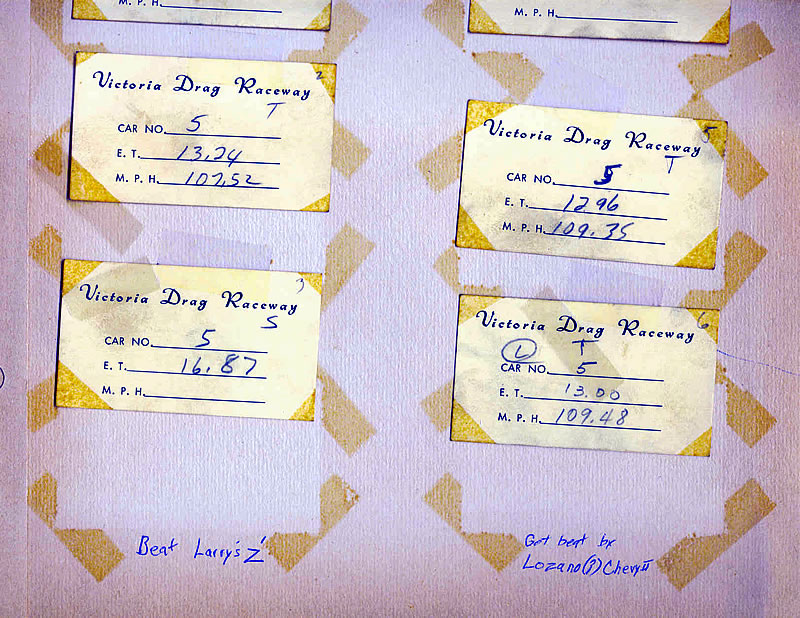 M. P. H.
2
Victoria Drag Raceway
T
CAR NO. 5
E. T. 13.24
M. P. H. 107.52
3
Victoria Drag Raceway
S
CAR NO. 5
E. T. 16.87
M. P. H.
Beat Larry's Z'
M. P. H.
5
Victoria Drag Raceway
T
CAR NO. 5
E. T. 12 96
M. P. H. 109.35
6
Victoria Drag Raceway
L T
CAR NO. 5
E. T. 13.00
M. P. H. 109.48
Got beat by
Lozano(?) Chevy II